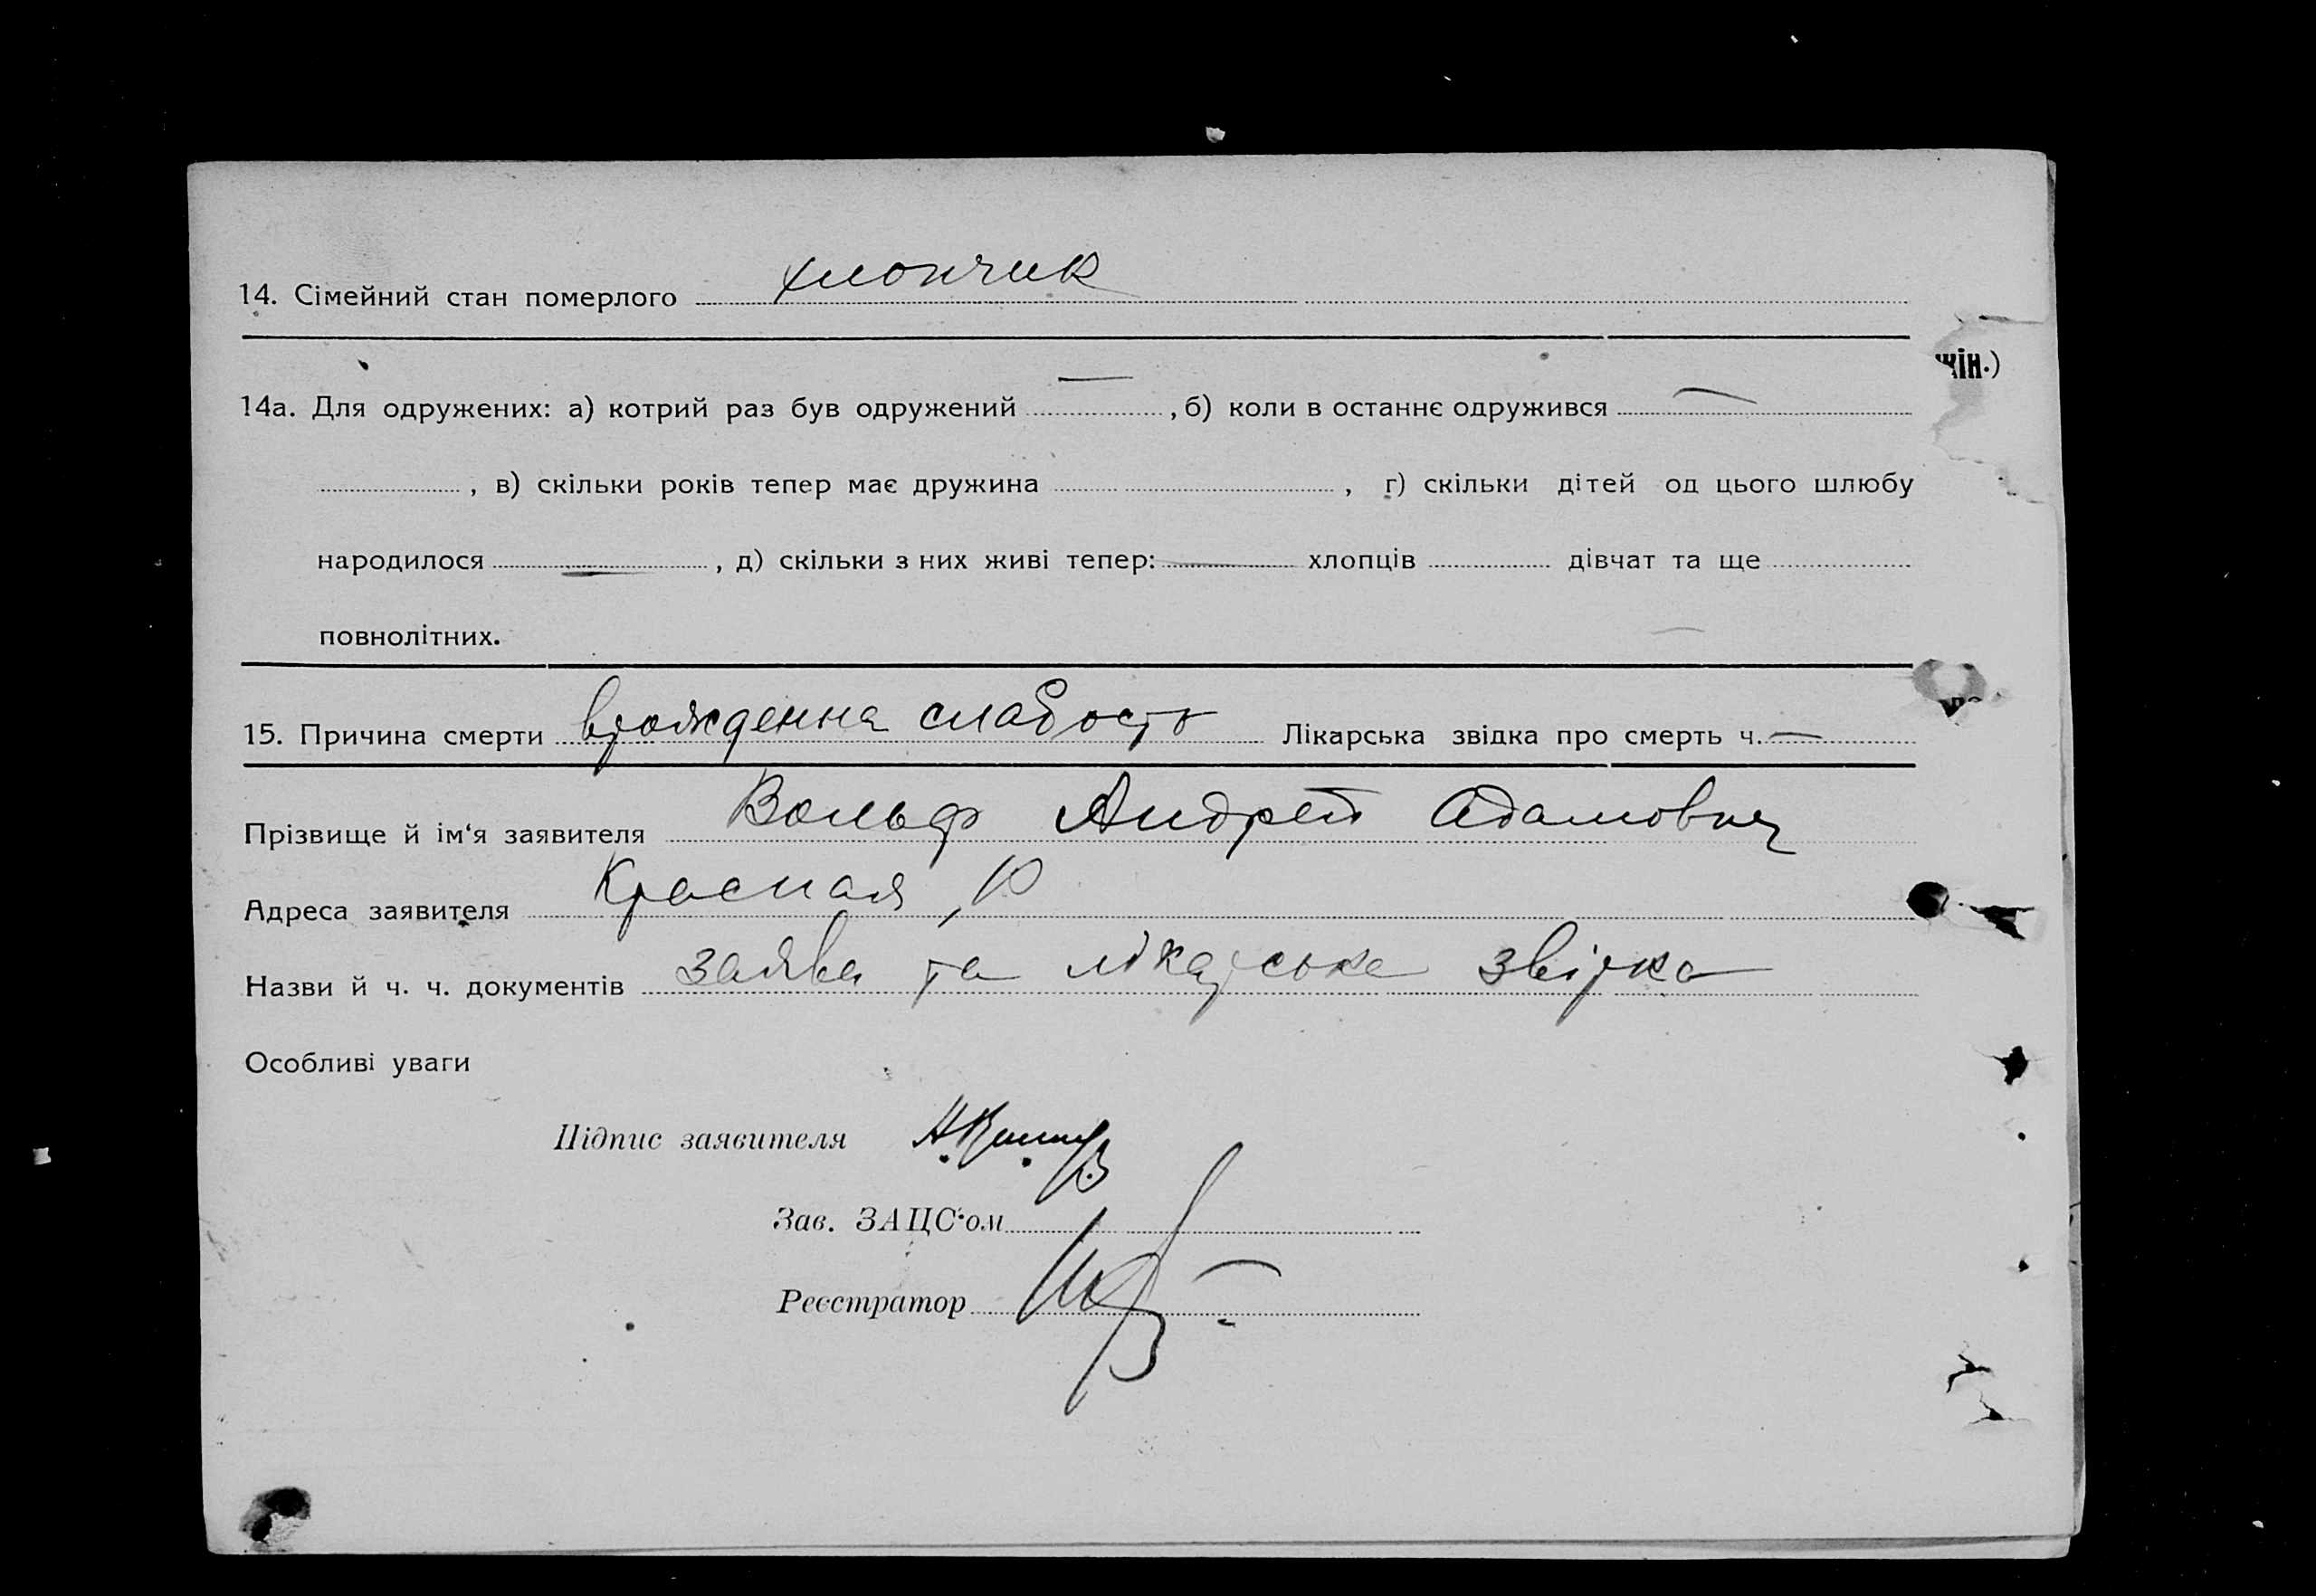 14. Сімейний стан померлого хлопчик
жін.)
14а. Для одружених: а) котрий раз був одружений — , б) коли в останнє одружився —
, в) скільки років тепер має дружина , г) скільки дітей од цього шлюбу
народилося — , д) скільки з них живі тепер: — хлопців дівчат та ще
повнолітних.
15. Причина смерти врожденна слабость Лікарська звідка про смерть ч. —
Прізвище й ім‘я заявителя Вольф Андрей Адамович
Адреса заявителя Красная, 10
Назви й ч. ч. документів заява та лікарська звірка
Особливі уваги
Підпис заявителя
Зав. ЗАЦС‘ом
Реєстратор